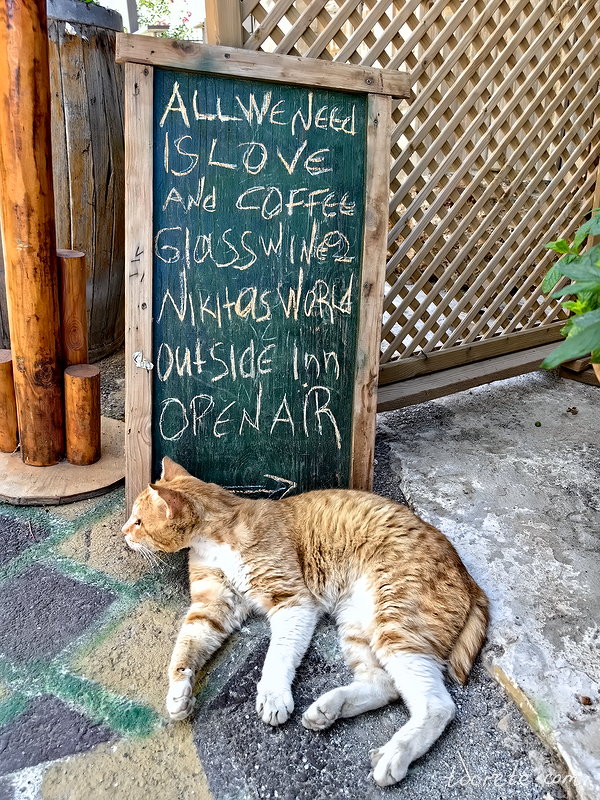 ALL WE NEEd
IS LOVE
ANd COFFEE
GlASS WINE 2
NIKItAS WORld
OUtSIDE Inn
OPEN AIR